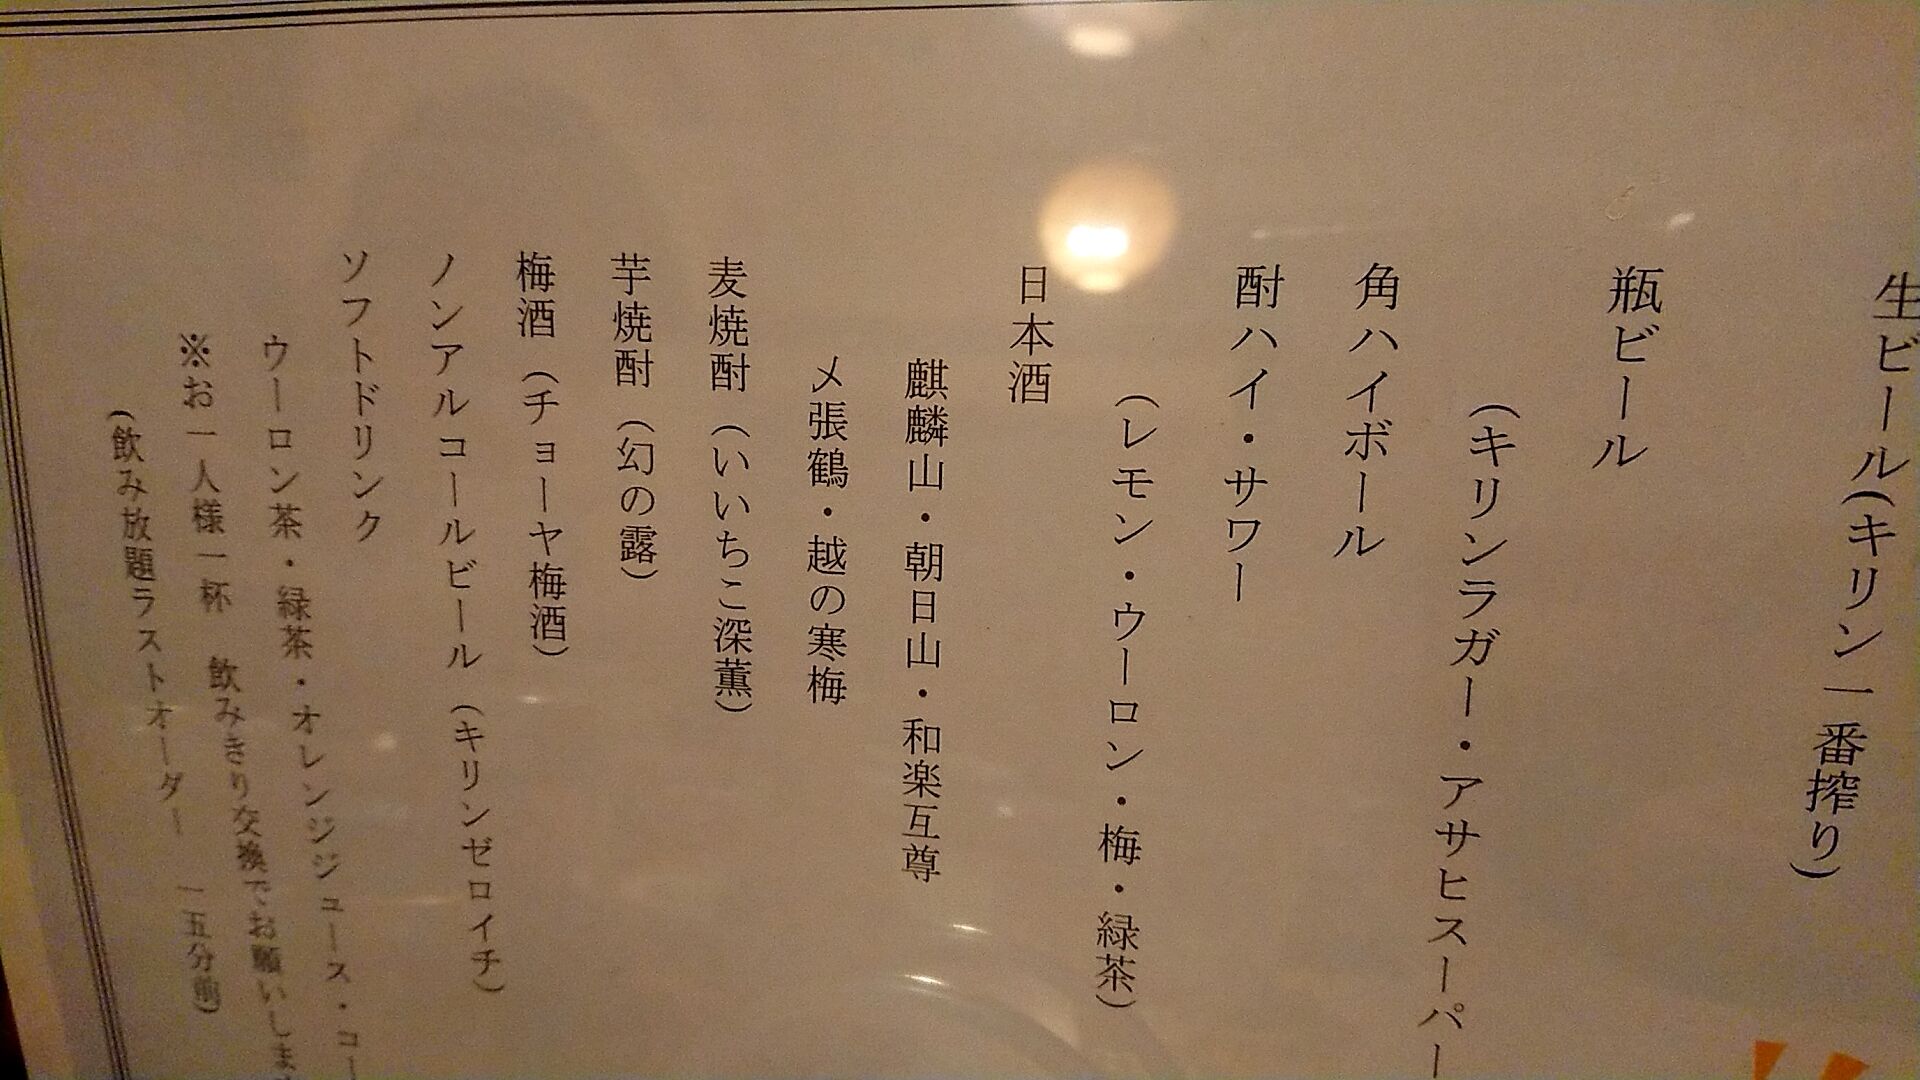 生ビール(キリン一番搾り)
瓶ビール
(キリンラガー・アサヒスーパー
角ハイボール
酎ハイ・サワー
(レモン・ウーロン・梅・緑茶)
日本酒
麒麟山・朝日山・和楽互尊
〆張鶴・越の寒梅
麦焼酎(いいちこ深薫)
芋焼酎(幻の露)
梅酒(チョーヤ梅酒)
ノンアルコールビール(キリンゼロイチ)
ソフトドリンク
ウーロン茶・緑茶・オレンジジュース・コー
※お一人様一杯 飲みきり交換でお願いしま
(飲み放題ラストオーダー 一五分前)